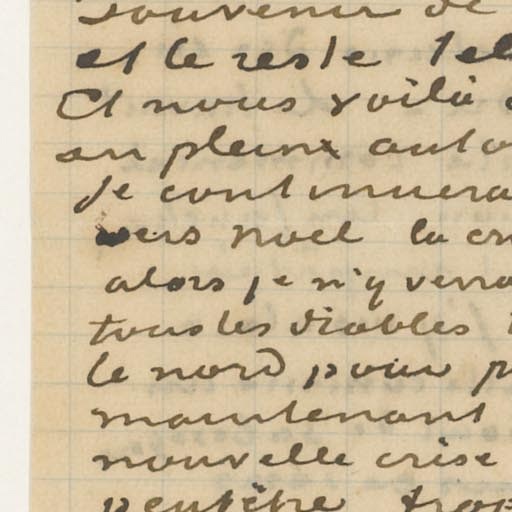 souvenir de
et le reste tel
Et nous voilà
en plein auto
Je continuera
vers noel la cri
alors je n'y verra
tous les diables
le nord pour p
maintenant
nouvelle crise
peutêtre trop